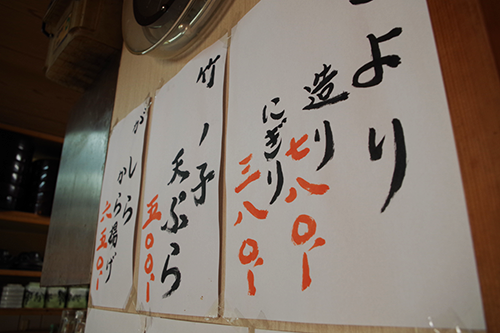 より
造り
七八〇、
にぎり
三八〇、
竹ノ子
天ぷら
五〇〇、
がしら
から揚げ
六五〇、